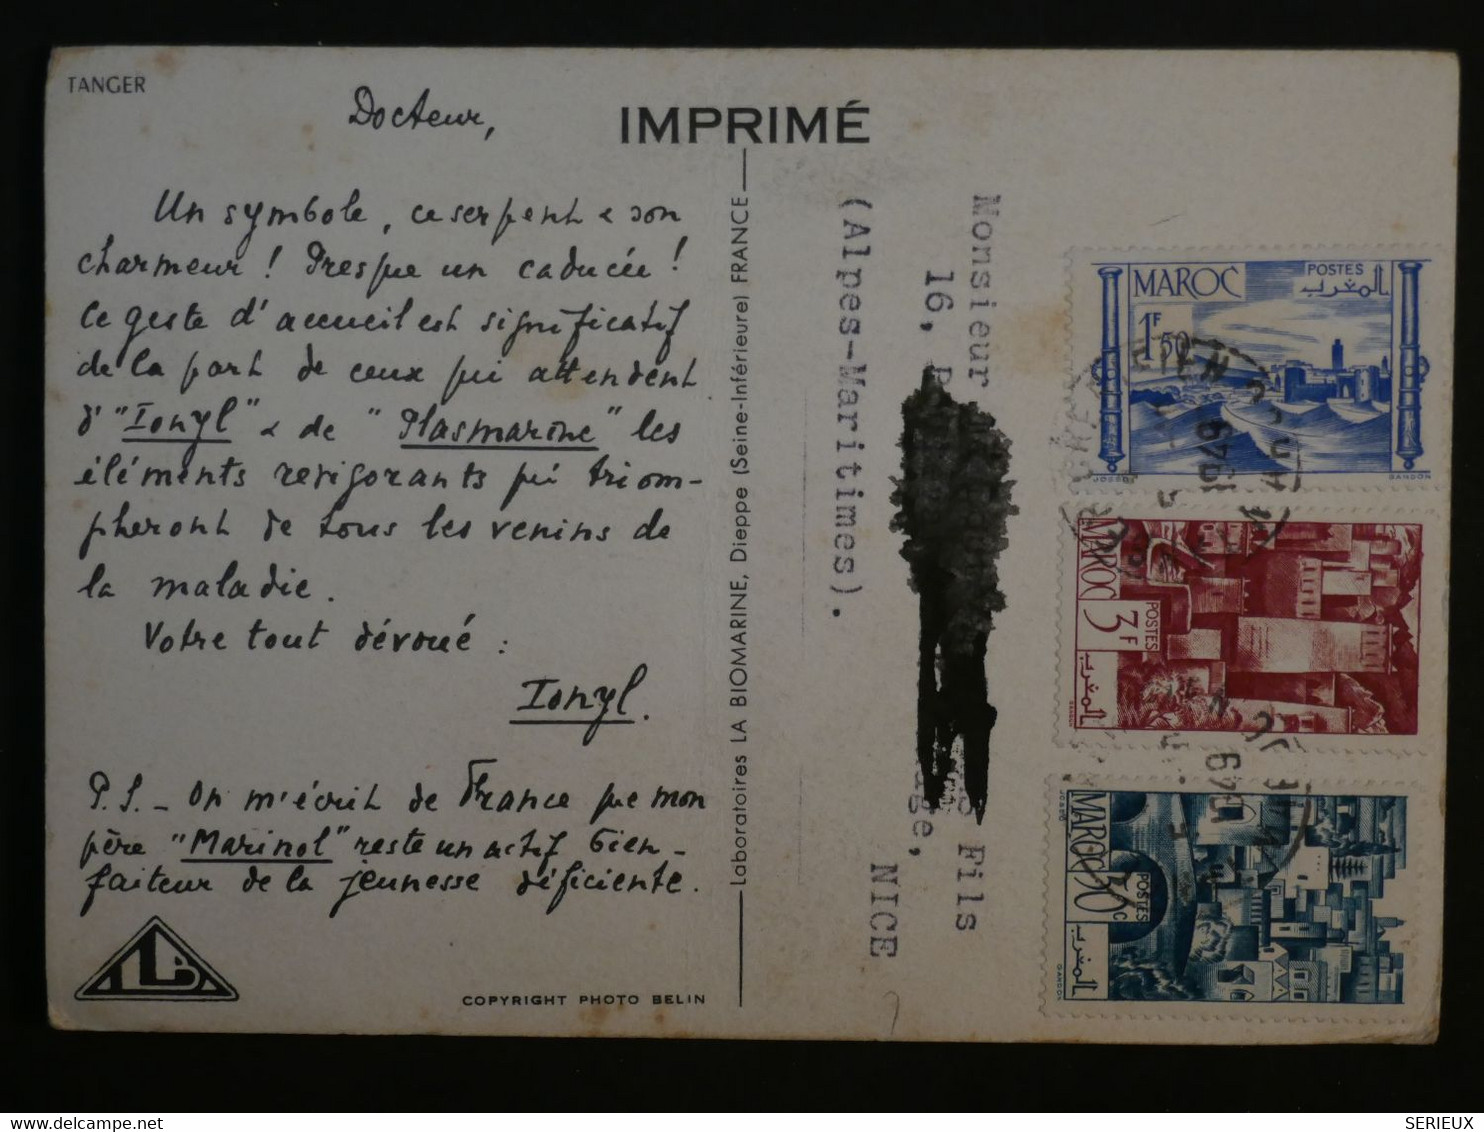 TANGER
IMPRIMÉ
Docteur,
Un symbole, ce serpent & son
charmeur ! Presque un caducée !
Ce geste d'accueil est significatif
de la part de ceux qui attendent
d'"Ionyl" & de "Plasmarine" les
éléments revigorants qui triom-
pheront de tous les venins de
la maladie.
Votre tout dévoué :
Ionyl.
P.S. - On m'écrit de France que mon
père "Marinol" reste un actif bien-
faiteur de la jeunesse déficiente.
LBA
COPYRIGHT PHOTO BELIN
Laboratoires LA BIOMARINE, Dieppe (Seine-Inférieure) FRANCE
Monsieur
Fils
16,
NICE
(Alpes-Maritimes).
MAROC
POSTES
المغرب
1F50
GANDON
MAROC
POSTES
3F
المغرب
GANDON
MAROC
POSTES
30c
المغرب
GANDON
1949
SERIEUX